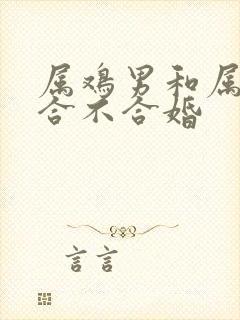 属鸡男和属
合不合婚
言言